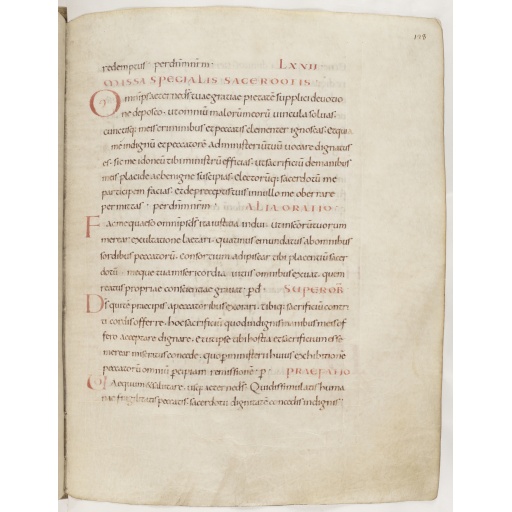 198
redemptus · perdnmnm · LXXII
MISSA SPECIALIS SACERDOTIS
Omnips aeterne ds tuae gratiae pietate supplici deuotio
ne deposco · ut omniu malorum meorū uincula soluas ·
cunctisq; meis criminibus et peccatis clementer ignoscas · et quia
me indignū et peccatorē ad ministeriū tuū uocare dignatus
es · sic me idoneū tibi ministrū efficias · ut sacrificiū demanibus
meis placide ac benigne suscipias · electorūq; sacerdotū me
participem facias · et de preceptis tuis in nullo me oberrare
permittas · perdnmnrm · ALIA ORATIO
Fac me quaeso omnips ds ita iustitia indui · ut in scōrū tuorum
merear exultatione laetari · quatinus emundatus ab omnibus
sordibus peccatorū · consortium adipiscar tibi placentiū sacer
dotū · meque tua misericordia uitiis omnibus exuat · quem
reatus propriae conscientiae grauat · pd · SUPER OB
Ds qui te praecipis a peccatoribus exorari · tibiq; sacrificiū contri
ti cordis offerre · hoc sacrificiū quod indignis manibus meis of
fero acceptare dignare · et ut ipse tibi hostia et sacrificium esse
merear miseratus concede · quo per ministerii huius exhibitionē
peccatorū omniū percipiam remissionē · p · PRAEFATIO
UD Aequum et salutare · usq; aeterne ds · Qui dissimulatis huma
nae fragilitatis peccatis · sacerdotii dignitatē concedis indignis ·